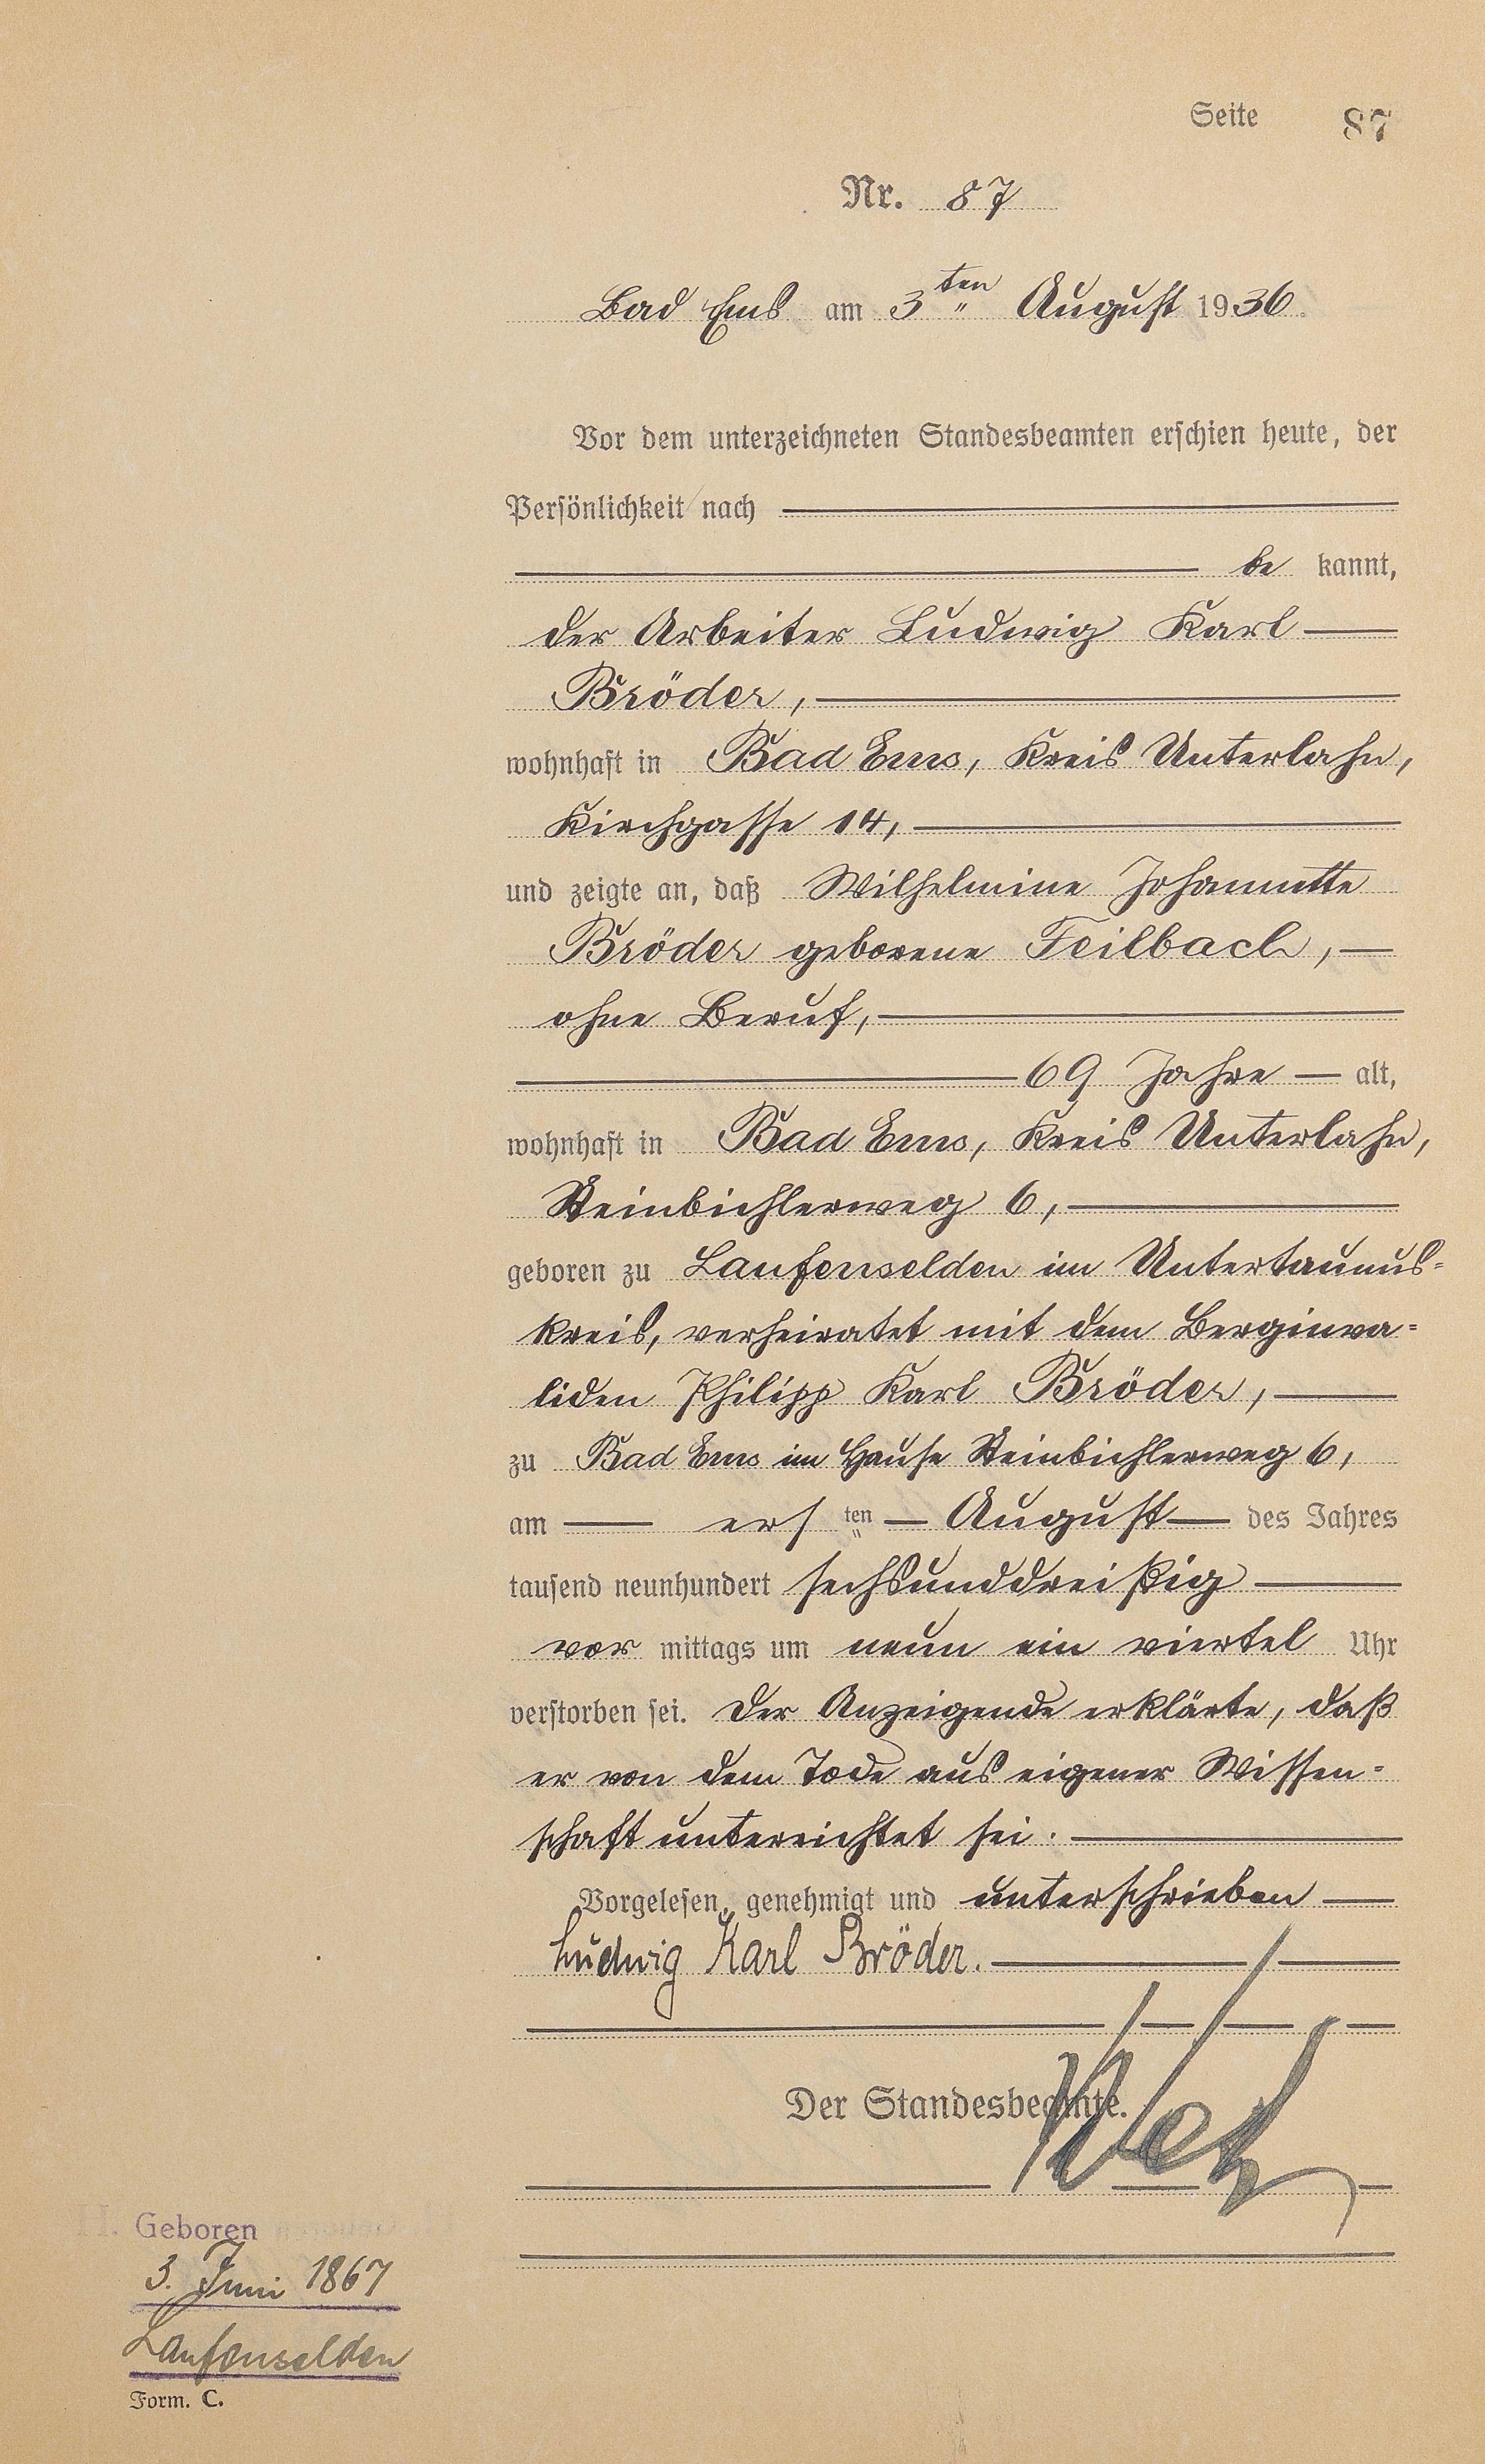 Seite 87
Nr. 87
Bad Ems am 3ten August 1936.
Vor dem unterzeichneten Standesbeamten erschien heute, der
Persönlichkeit nach
be kannt,
der Arbeiter Ludwig Karl
Bröder,
wohnhaft in Bad Ems, Kreis Unterlahn,
Kirchgasse 14,
und zeigte an, daß Wilhelmine Johannette
Bröder geborene Feilbach,
ohne Beruf,
69 Jahre alt,
wohnhaft in Bad Ems, Kreis Unterlahn,
Steinbichlerweg 6,
geboren zu Laufenselden im Untertaunus=
kreis, verheiratet mit dem Berginva=
liden Philipp Karl Bröder,
zu Bad Ems im Hause Steinbichlerweg 6,
am ersten August des Jahres
tausend neunhundert sechsunddreißig
vor mittags um neun ein viertel Uhr
verstorben sei. Der Anzeigende erklärte, daß
er von dem Tode aus eigener Wissen=
schaft unterrichtet sei.
Vorgelesen, genehmigt und unterschrieben
Ludwig Karl Bröder.
Der Standesbeamte.
H. Geboren
3. Juni 1867
Laufenselden
Form. C.